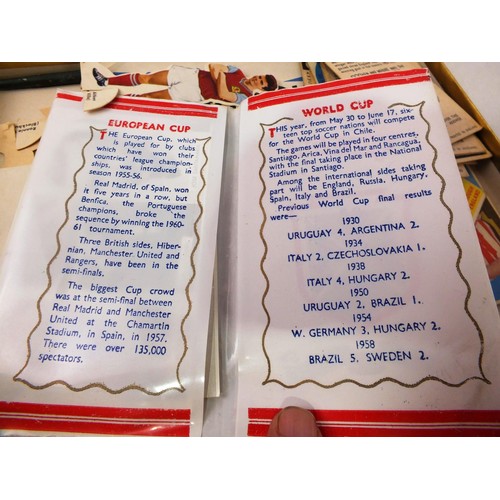 EUROPEAN CUP
THE European Cup, which
is played for by clubs
which have won their
countries' league champion-
ships, was introduced in
season 1955-56.
Real Madrid, of Spain, won
it five years in a row, but
Benfica, the Portuguese
champions, broke the
sequence by winning the 1960-
61 tournament.
Three British sides, Hiber-
nian, Manchester United and
Rangers, have been in the
semi-finals.
The biggest Cup crowd
was at the semi-final between
Real Madrid and Manchester
United at the Chamartin
Stadium, in Spain, in 1957.
There were over 135,000
spectators.
WORLD CUP
THIS year, from May 30 to June 17, six-
teen top soccer nations will compete
for the World Cup in Chile.
The games will be played in four centres,
Santiago, Arica, Vina del Mar and Rancagua,
with the final taking place in the National
Stadium in Santiago.
Among the international sides taking
part will be England, Russia, Hungary,
Spain, Italy and Brazil.
Previous World Cup final results
were—
1930
URUGUAY 4, ARGENTINA 2.
1934
ITALY 2, CZECHOSLOVAKIA 1.
1938
ITALY 4, HUNGARY 2.
1950
URUGUAY 2, BRAZIL 1.
1954
W. GERMANY 3, HUNGARY 2.
1958
BRAZIL 5, SWEDEN 2.